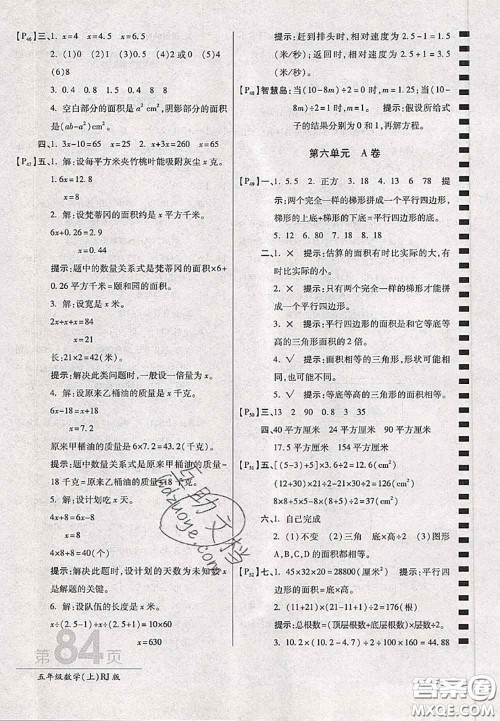 【P46】三、1. x=4.5 x=4 x=6.5
2. (1)0 (2)0 (3)5 (4)4 (5)4
(6)8
3. 0.4 0.8 1.5 0.4 8 8
4. 空白部分的面积是 a² cm², 阴影部分的面积是
(ab-a²) cm²
四、1. 3x-10=65 x=25 2. x+6x=84 x=12
【P47】五、1. 解：设每平方米夹竹桃叶能吸附灰尘 x 克。
1.6x=12.8
x=8
2. 解：设梵蒂冈的面积约是 x 平方千米。
6x+0.26=2.9
x=0.44
提示：题中的数量关系式是梵蒂冈的面积×6+
0.26平方千米=颐和园的面积。
3. 解：设宽是 x 米。
2x+x+x=84
x=21
长：21×2=42(米)
提示：解决此类问题时,一般设一倍量为 x。
4. 解：设原来乙桶油的质量是 x 千克。
6x-18=x+18
x=7.2
原来甲桶油的质量是 6×7.2=43.2(千克)
提示：题中数量关系式是原来甲桶油的质量-
18千克=原来乙桶油的质量+18千克。
5. 解：设计划吃 x 天。
4x+8=6x-8
x=8
4×8+8=40(个)
提示：解决此题时,设计划的天数为未知数 x
是解题的关键。
6. 解：设队伍的长度是 x 米。
x÷(2.5-1)+x÷(2.5+1)=10×60
x=630
提示：赶到排头时,相对速度是 2.5-1=1.5
(米/秒)；返回排尾时,相对速度为 2.5+1=3.5
(米/秒)。
【P48】智慧岛：当(10-8m)÷2=0时,m=1.25；当(10-
8m)÷2=1时,m=1。 提示：假设所给式
子的结果分别为0和1,再解方程。
第六单元 A 卷
【P49】一、1. 5.5 2. 正方 3. 18 4. 13 6 78 提示：
两个完全一样的梯形拼成一个平行四边形,
梯形的上底+梯形的下底=平行四边形的底。
5. 12 6. 80 7. 18 8. 18
二、1. × 提示：估算的面积有时比实际的大,
有时比实际的小。
2. × 提示：只有两个完全一样的梯形才能拼
成一个平行四边形。
3. × 提示：平行四边形的面积是和它等底等
高的三角形面积的2倍。
4. √ 提示：面积相等的三角形,形状可能相
同,也可能不同。
5. √ 提示：等底等高的三角形的面积相等。
【P50】三、13 2 0.9 0.8 3 35
四、40平方厘米 24平方厘米 90平方厘米
17.5平方厘米 154平方厘米
【P51】五、[(5-3)+5]×3.6÷2=12.6(cm²)
[(6-3)+6]×4÷2=18(cm²)
8×8+5×5-8×8÷2-(8+5)×5÷2=24.5(cm²)
六、1. 自己完成
2. (1)不变 (2)三角 底×高÷2 (3)图形
A、B、C、D的面积都相等。
【P52】七、1. 45×32×20=28800(厘米²) 提示：平行四
边形的面积=底×高。
2. (11+21)×11÷2=176(根)
提示：总根数=(顶层根数+底层根数)×层数÷2
3. 10.2×(44.9-10.2-18)÷2=85.17(米²)
第84页
五年级数学(上)RJ版
答案圈
MXQE.COM